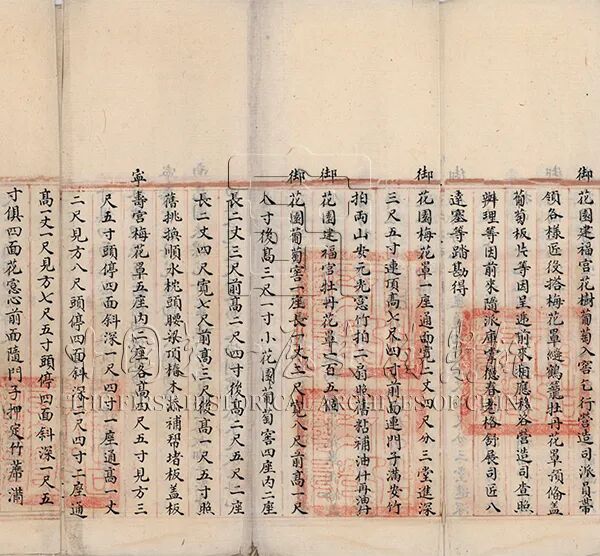 御花園建福宮花樹葡萄入窖乞行營造司派員帶
領各樣匠役搭梅花罩縫鶴籠牡丹花罩預俻蓋
葡萄板片等因呈遞前來相應移咨營造司查照
辦理等因前來隨派庫掌慶春老格舒展司匠八
達塞等踏勘得
御花園梅花罩一座通面寬二丈四尺分三堂進深
三尺五寸連頂高七尺四寸前面連門子滿安竹
拍兩山安元光窓竹拍二扇照舊粘補油什
御花園建福宮牡丹花罩一百五個
御花園葡萄窖一座長一丈二尺寬八尺前高一尺
八寸後高三尺一寸小花園葡萄窖四座內二座
長二丈三尺前高二尺四寸後高二尺五寸二座
長二丈四尺寬七尺前高三尺後高一尺五寸照
舊挑換順水枕頭腰梁頂樁木補幇堵板蓋板
寧壽宮梅花罩五座內二座各高四尺五寸見方三
尺五寸頭停四面斜深一尺四寸一座通高一丈
二尺見方八尺頭停四面斜深二尺四寸二座通
高一丈一尺見方七尺五寸頭停四面斜深一尺五
寸俱四面花窓心前面隨門子押定竹蓆滿